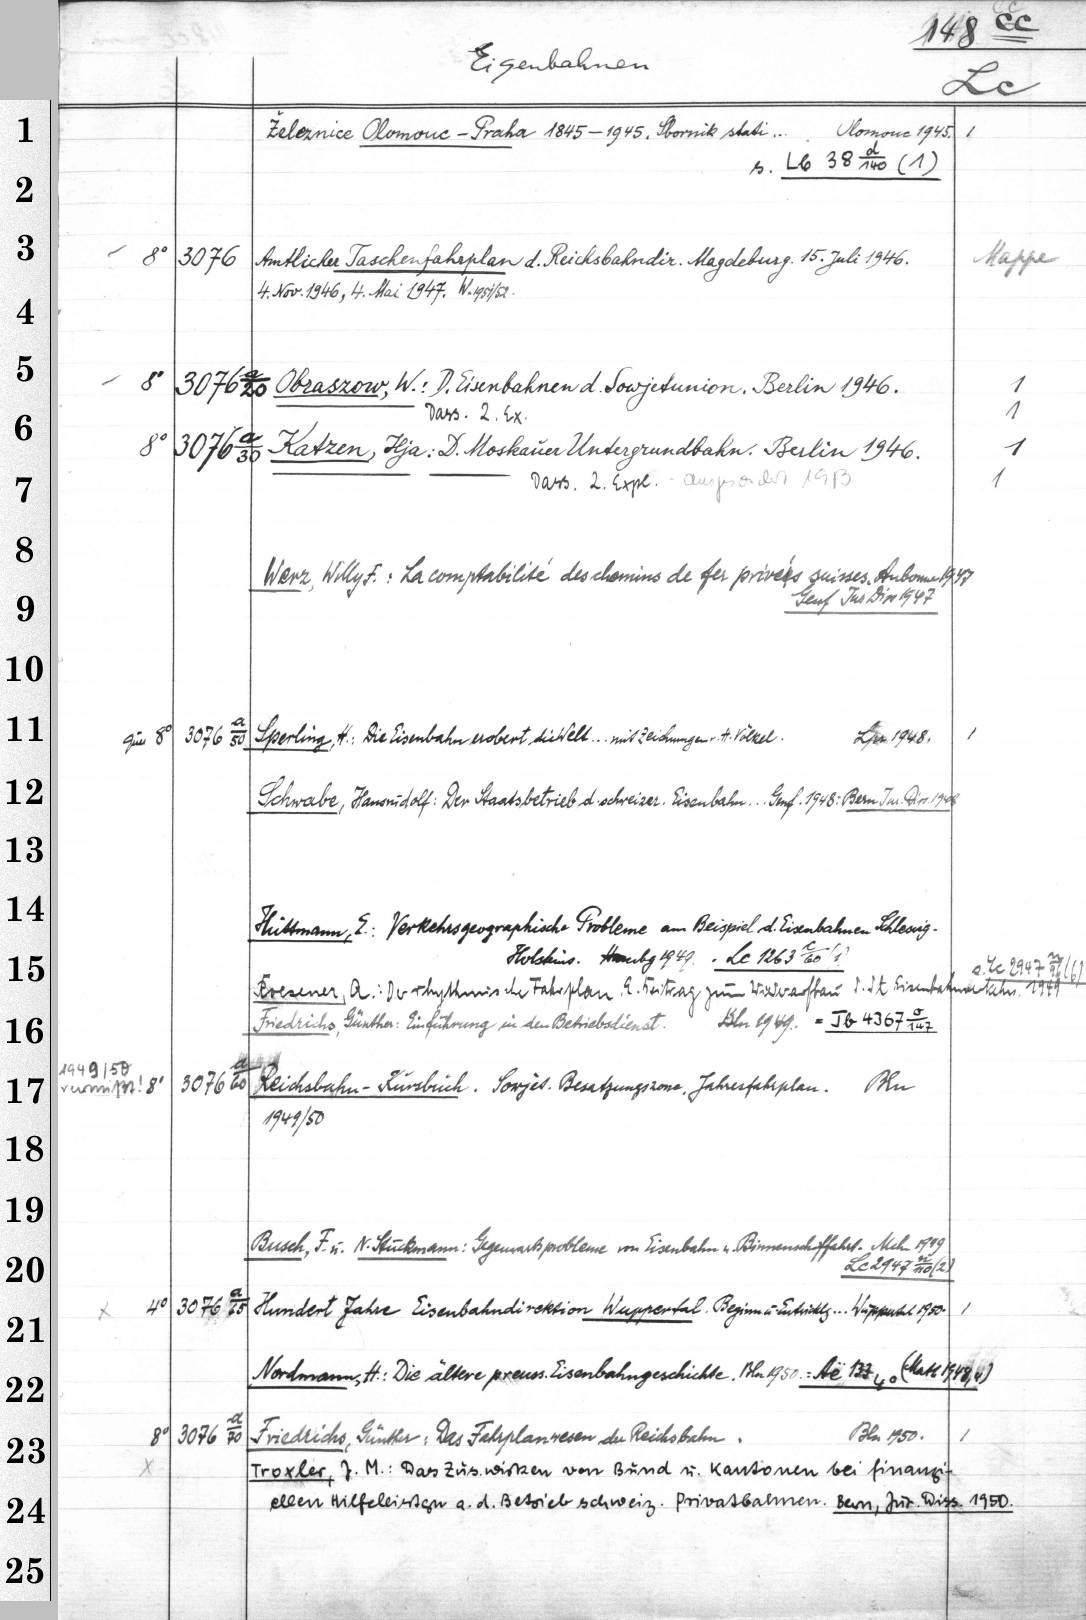 148 cc
Eisenbahnen
Lc
1 Železnice Olomouc - Praha 1845-1945. Sbornik stati... Olomouc 1945. 1
2 s. Lb 38 d/140 (1)
3 8° 3076 Amtlicher Taschenfahrplan d. Reichsbahndir. Magdeburg. 15. Juli 1946. Mappe
4 4. Nov. 1946, 4. Mai 1947. W. 1951/52.
5 8° 3076 a/20 Obraszow, W.: D. Eisenbahnen d. Sowjetunion. Berlin 1946. 1
6 Dass. 2. Ex. 1
8° 3076 a/30 Katzen, Ilja: D. Moskauer Untergrundbahn. Berlin 1946. 1
7 Dass. 2. Expl. - ausgesondert 1
8
9 Werz, Willy F.: La comptabilité des chemins de fer privés suisses. Aubonne 1947
Genf Jur Diss 1947
10
11 quer 8° 3076 a/50 Sperling, H.: Die Eisenbahn erobert die Welt ... mit Zeichnungen v. H. Völkel. Lpz 1948. 1
12 Schwabe, Hansrudolf: Der Staatsbetrieb d. schweizer. Eisenbahn... Genf. 1948: Bern Jur. Diss. 1948
13
14 Hüttmann, E.: Verkehrsgeographische Probleme am Beispiel d. Eisenbahnen Schleswig-
15 Holsteins. Hambg 1949. Lc 1263 /60 s. Lc 2947 (6)
Fresener, A.: Der rhythmische Fahrplan. E. Beitrag zum Wiederaufbau d. dt. Eisenbahnverkehrs. 1949
16 Friedrichs, Günther: Einführung in den Betriebsdienst. Bln 1949. = Jb 4367 /147
1949/50
17 vermißt! 8° 3076 a/60 Reichsbahn-Kursbuch. Sowjet. Besatzungszone, Jahresfahrplan. Bln
1949/50
18
19
Busch, F. u. N. Stuckmann: Gegenwartsprobleme von Eisenbahn u. Binnenschiffahrt. Mchn 1949
20 Lc 2947 (2)
21 4° 3076 a/65 Hundert Jahre Eisenbahndirektion Wuppertal. Beginn u. Entwicklg ... Wuppertal 1950 1
22 Nordmann, H.: Die ältere preuss. Eisenbahngeschichte. Bln 1950. = Aë 133 4° (Math 1948,4)
23 8° 3076 a/70 Friedrichs, Günther: Das Fahrplanwesen der Reichsbahn. Bln 1950. 1
Troxler, J. M.: Das Zus.wirken von Bund u. Kantonen bei finanzi-
24 ellen Hilfeleistgn a. d. Betrieb schweiz. Privatbahnen. Bern, Jur. Diss. 1950.
25